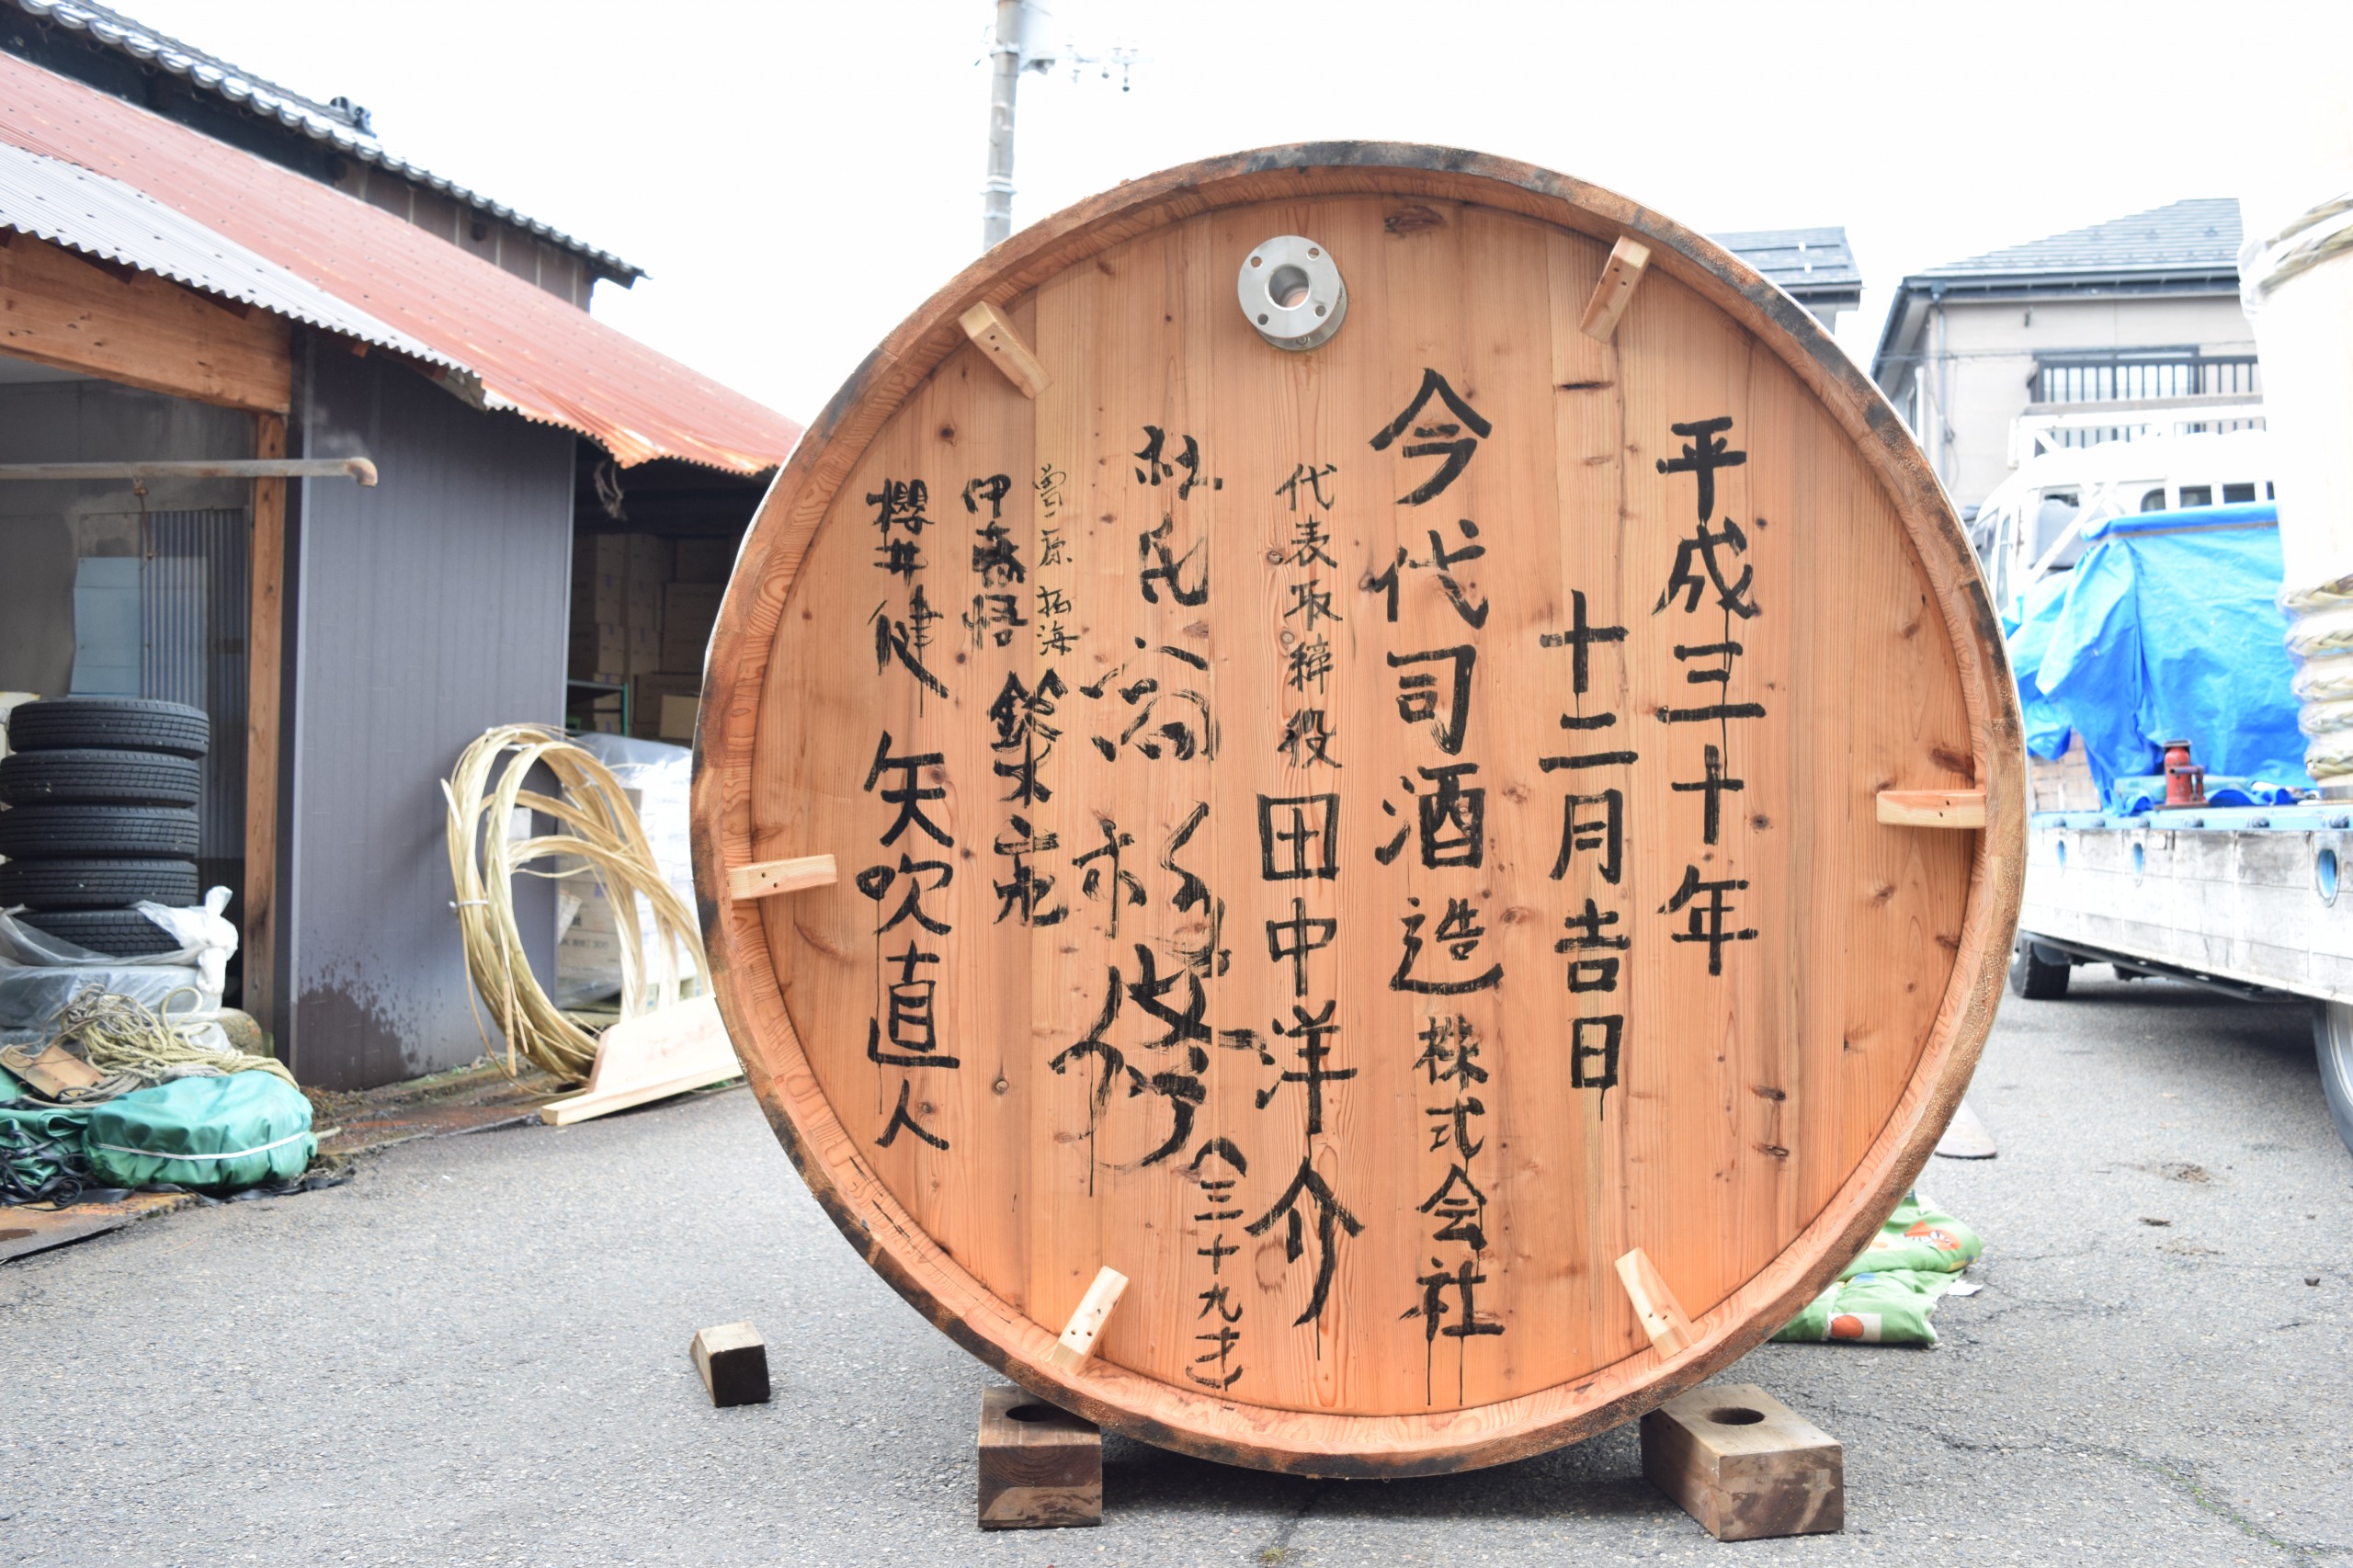 平成三十年
十二月吉日
今代司酒造株式会社
代表取締役 田中洋介
杜氏
(三十九才)
曽原拓海
伊藤悟 鈴木亮
櫻井健 矢吹直人